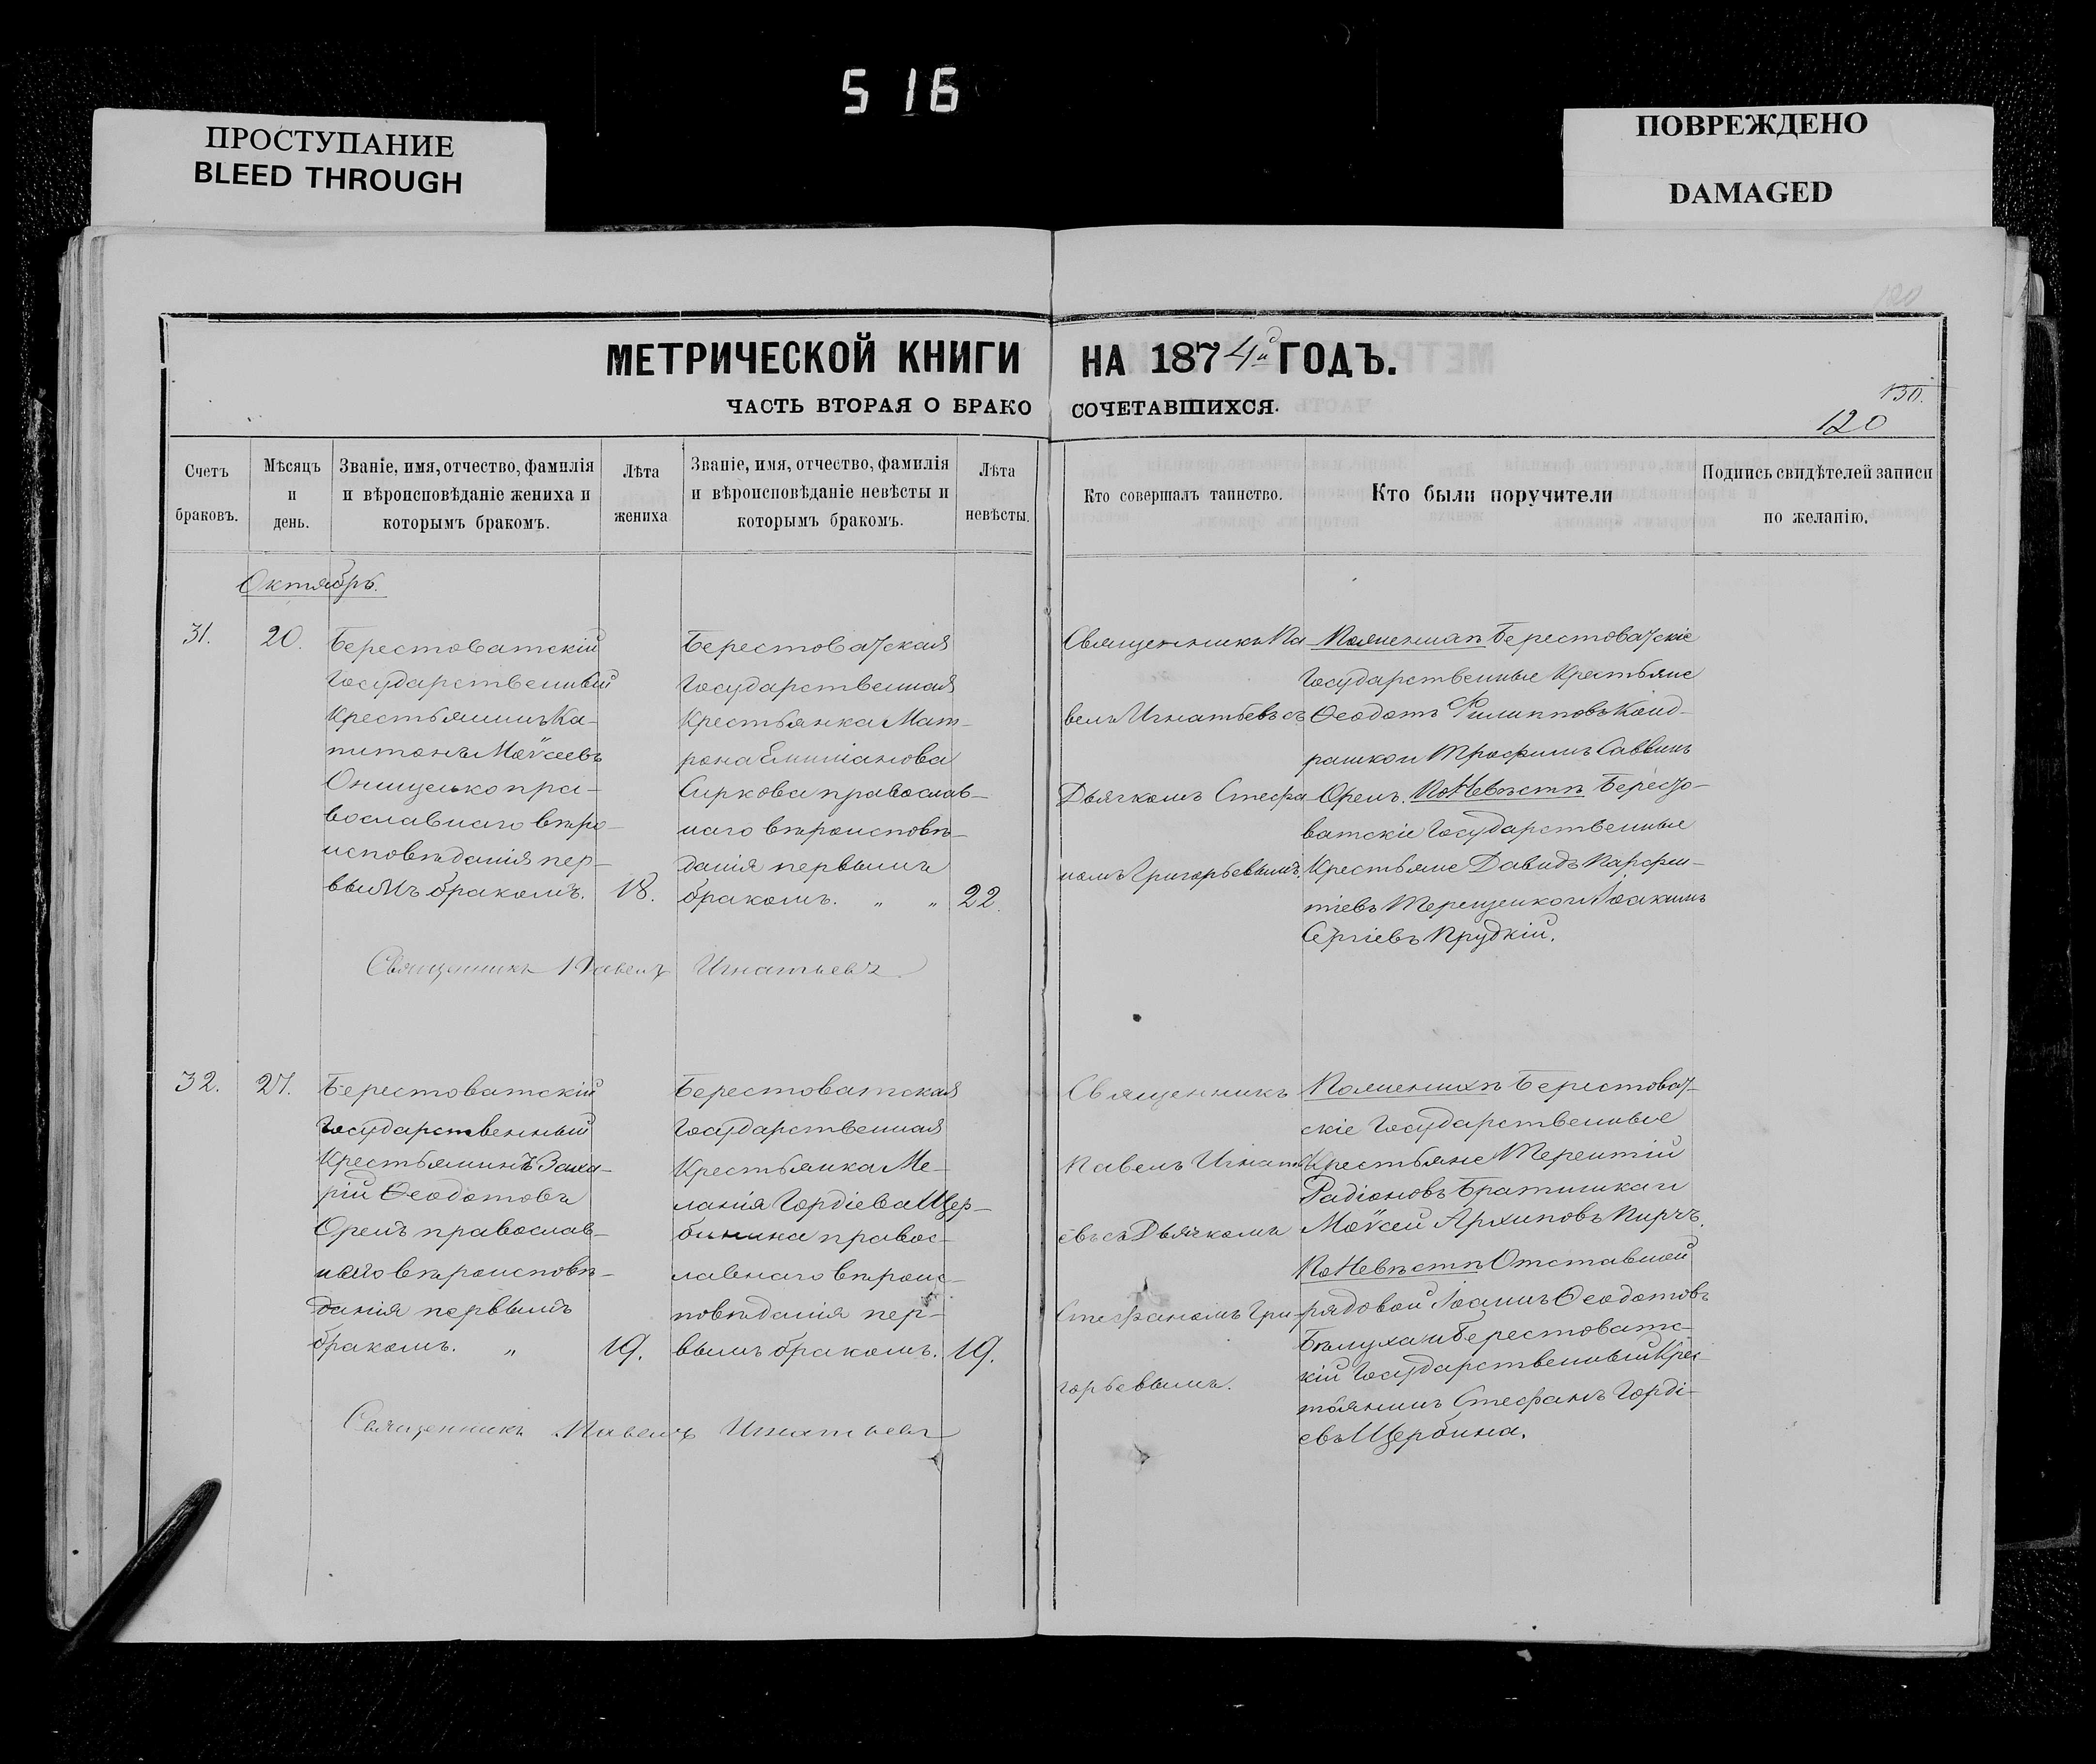 516
ПРОСТУПАНИЕ
BLEED THROUGH
ПОВРЕЖДЕНО
DAMAGED
МЕТРИЧЕСКОЙ КНИГИ НА 1874й ГОДЪ.
ЧАСТЬ ВТОРАЯ О БРАКОСОЧЕТАВШИХСЯ.
130.
120
Счетъ
браковъ.
Мѣсяцъ
и
день.
Званіе, имя, отчество, фамилія
и вѣроисповѣданіе жениха и
которымъ бракомъ.
Лѣта
жениха
Званіе, имя, отчество, фамилія
и вѣроисповѣданіе невѣсты и
которымъ бракомъ.
Лѣта
невѣсты.
Кто совершалъ таинство.
Кто были поручители
Подпись свидѣтелей записи
по желанію.
Октябрь.
31.
20.
Берестоватскій
Государственный
Крестьянинъ Ка-
питонъ Моѵсеевъ
Онищенко пра-
вославнаго вѣро-
исповѣданія пер-
вымъ бракомъ.
18.
Берестоватская
Государственная
Крестьянка Мат-
рона Емиліанова
Сиркова православ-
наго вѣроисповѣ-
данія первымъ
бракомъ. „ „
22.
Священникъ Па
велъ Игнатьевъ съ
Дьячкомъ Стефа
номъ Григорьевымъ.
По женихѣ Берестоватскіе
Государственные Крестьяне
Ѳеодотъ Филипповъ Конд-
рашко и Трофимъ Саввинъ
Орелъ. По Невѣстѣ Бересто-
ватскіе Государственные
Крестьяне Давидъ Парфен-
тіевъ Терещенко и Іоакимъ
Сергіевъ Прудкій.
Священникъ Павелъ Игнатьевъ.
32.
27.
Берестоватскій
Государственный
Крестьянинъ Заха-
рій Ѳеодотовъ
Орелъ православ-
наго вѣроисповѣ-
данія первымъ
бракомъ. „
19.
Берестоватская
Государственная
Крестьянка Ме-
ланія Гордіева Щер-
бинина правос-
лавнаго вѣроис-
повѣданія пер-
вымъ бракомъ.
19.
Священникъ
Павелъ Игнать
евъ съ Дьячкомъ
Стефаномъ Гри-
горьевымъ.
По женихѣ Берестоват-
скіе Государственные
Крестьяне Терентій
Радіоновъ Братишка и
Моѵсей Архиповъ Пирчъ.
По Невѣстѣ Отставной
рядовой Іоаннъ Ѳеодотовъ
Бѣлуха и Берестоватс-
кій Государственный Крес-
тьянинъ Стефанъ Горді-
евъ Щербина.
Священникъ Павелъ Игнатьевъ